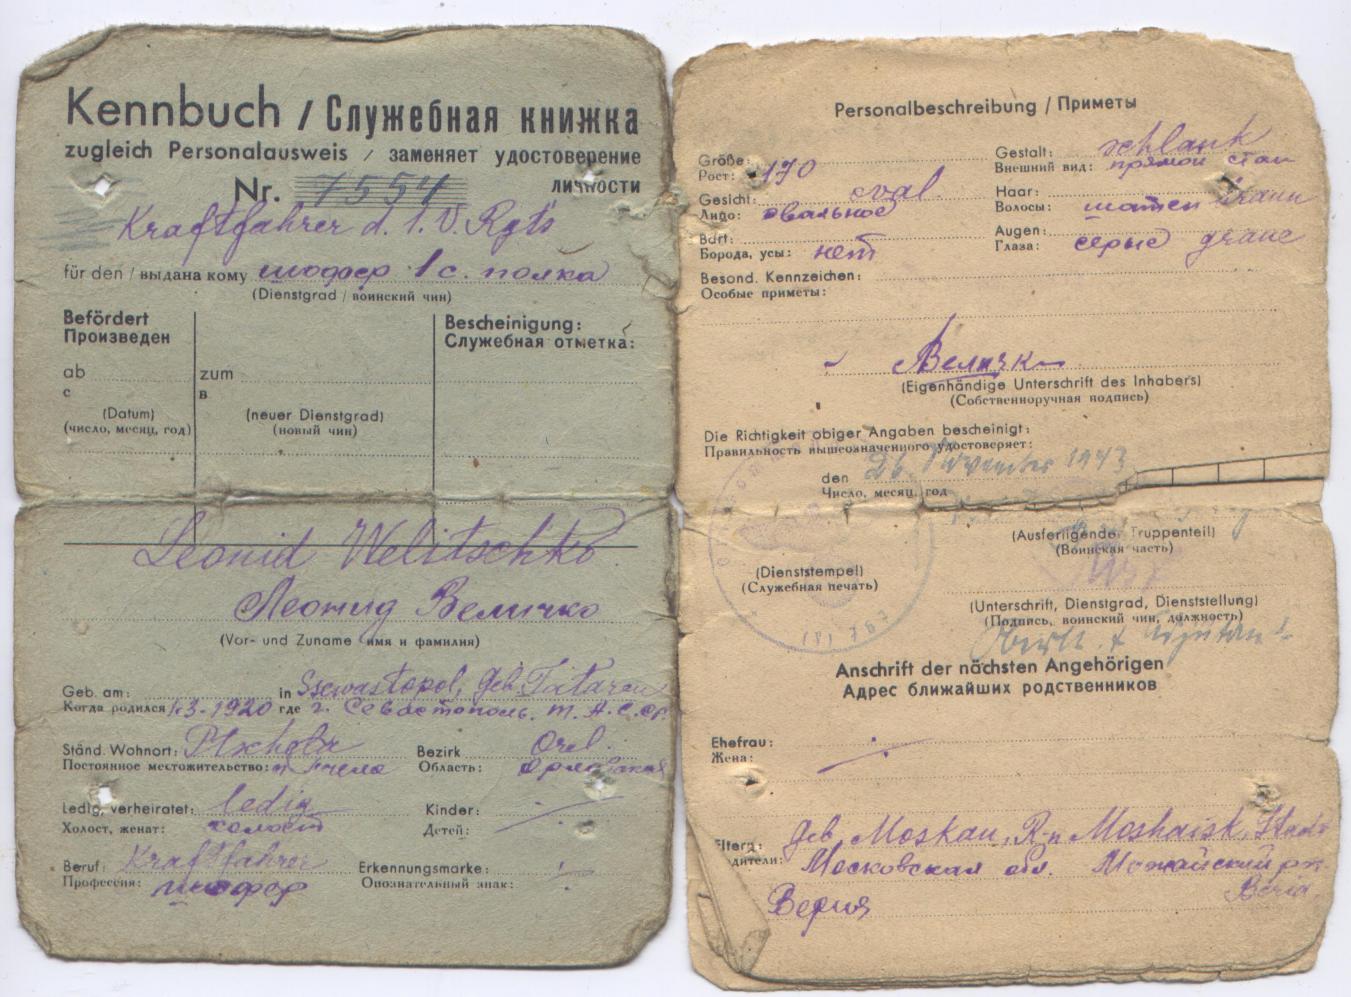 Kennbuch / Служебная книжка
zugleich Personalausweis / заменяет удостоверение
личности
Nr. 7554
Kraftfahrer d. 1. V. Rgts
für den / выдана кому шофер 1 с. полка
(Dienstgrad / воинский чин)
Befördert
Произведен
Bescheinigung:
Служебная отметка:
ab zum
с в
(Datum) (neuer Dienstgrad)
(число, месяц, год) (новый чин)
Leonid Welitschko
Леонид Величко
(Vor- und Zuname имя и фамилия)
Geb. am: in Ssewastopol, Geb. Tataren
Когда родился 1.3-1920 где г. Севастополь. Т.А.С.СР.
Ständ. Wohnort: Bezirk Orel.
Постоянное местожительство: Область: Орловская
Ledig, verheiratet: ledig Kinder:
Холост, женат: холост Детей:
Beruf: Kraftfahrer Erkennungsmarke:
Профессия: шофер Опознавательный знак:
Personalbeschreibung / Приметы
Größe: Gestalt: schlank
Рост: 170 Внешний вид: прямой стан
Gesicht: oval. Haar: braun
Лицо: овальное Волосы: шатен
Bart: Augen: graue
Борода, усы: нет Глаза: серые
Besond. Kennzeichen:
Особые приметы:
Величко
(Eigenhändige Unterschrift des Inhabers)
(Собственноручная подпись)
Die Richtigkeit obiger Angaben bescheinigt:
Правильность вышеозначенного удостоверяет:
den 26. November 1943
Число, месяц, год
(Ausfertigender Truppenteil)
(Воинская часть)
(Dienststempel)
(Служебная печать)
(Unterschrift, Dienstgrad, Dienststellung)
(Подпись, воинский чин, должность)
Oberlt. + Adjutant
Anschrift der nächsten Angehörigen
Адрес ближайших родственников
Ehefrau:
Жена:
Geb. Moskau, R-n Moshaisk, Stadt
Московская обл. Можайский рн.
Верия Beria